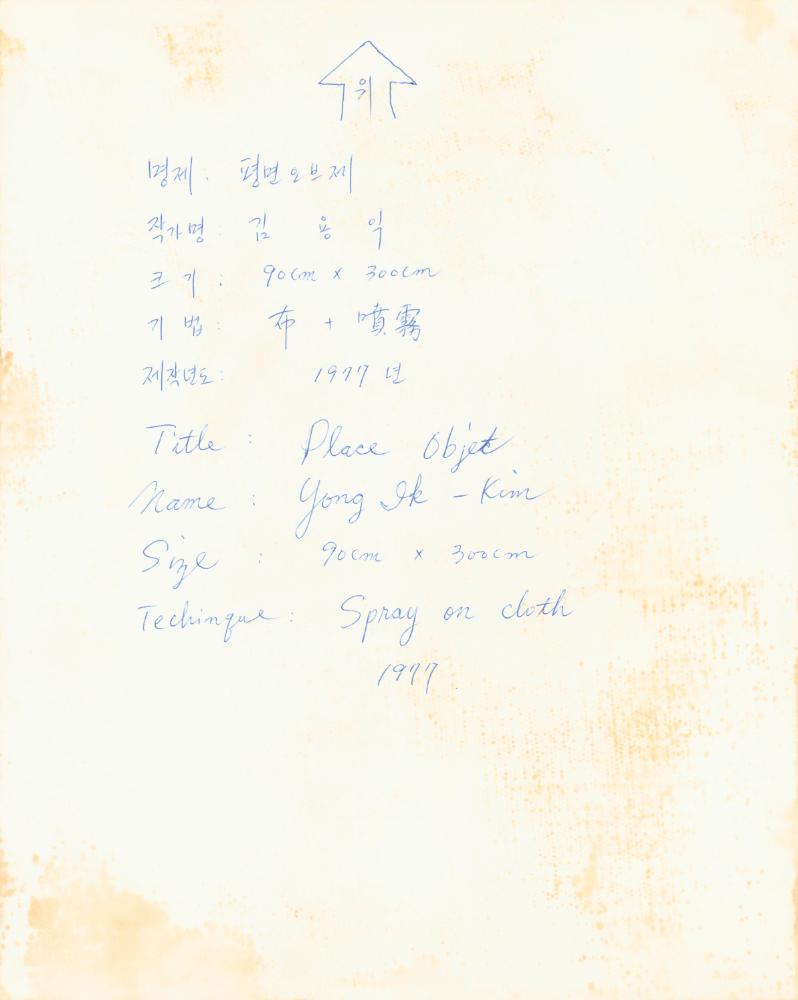 위
명제: 평면오브제
작가명: 김 용 익
크 기: 90cm x 300cm
기 법: 布 + 噴霧
제작년도: 1977 년
Title: Place Objet
Name: Yong Ik - Kim
Size: 90cm x 300cm
Techinque: Spray on cloth
1977